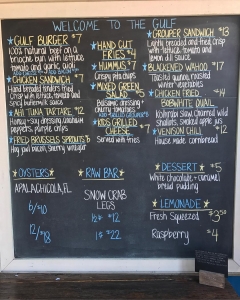 WELCOME TO THE GULF
GULF BURGER $7
100% natural beef on a
brioche bun with lettuce
tomato and garlic aioli
CHICKEN SANDWICH $7
Hand breaded tenders fried
Crisp w/ lettuce, tomato and
spicy buttermilk sauce
AHI TUNA TARTARE $12
peppers, purple crips
FRIED BRUSSELS SPROUTS $8
Hog jowl bacon, sherry vinegar
HAND CUT
FRIES $4
HUMMUS $7
Crispy pita chips
MIXED GREEN
SALAD
Balsamic dressing
cherry tomatoes
KIDS GRILLED
CHEESE $7
Served with fries
GROUPER SANDWICH $13
Lightly breaded and fried crisp
with lettuce, tomato and
lemon dill sauce
BLACKENED WAHOO $17
Toasted quinoa, roasted
winter vegetables
CHICKEN FRIED $14
BOBWHITE QUAIL
VENISON CHILI $12
House made cornbread
OYSTERS
APALACHICOLA, FL
6/$10
12/$18
RAW BAR
SNOW CRAB
LEGS
½# $12
1# $22
DESSERT $5
White chocolate, caramel
bread pudding
LEMONADE
Fresh Squeezed $3.50
Raspberry $4